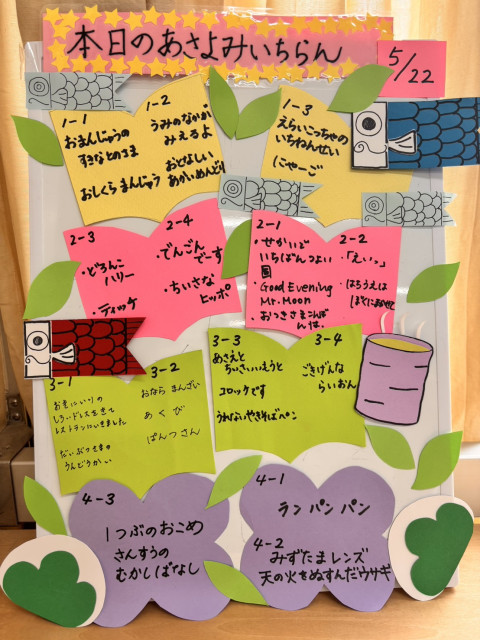 本日のあさよみいちらん
5/22
1-1
おまんじゅうの
すきなとのさま
おしくらまんじゅう
1-2
うみのなかが
みえるよ
おとなしい
あかいめんどり
1-3
えらいこっちゃの
いちねんせい
にゃーご
2-3
・どろんこ
ハリー
・ティッケ
2-4
・でんごん
でーす
・ちいさな
ヒッポ
2-1
・せかいで
いちばんつよい
国
・Good Evening
Mr.Moon
・おつきさまこんばん
は。
2-2
・「えいっ」
・はちうえは
ぼくにまかせて
3-1
お気にいりの
しろいドレスを着て
レストランにいきました
どうぶつたちの
うんどうかい
3-2
おなら まんざい
あくび
ぱんつさん
3-3
あさえと
ちいさいいもうと
コロッケです
うれないやきそばペン
3-4
ごきげんな
らいおん
4-3
1つぶのおこめ
さんすうの
むかしばなし
4-1
ランパンパン
4-2
みずたまレンズ
天の火をぬすんだウサギ